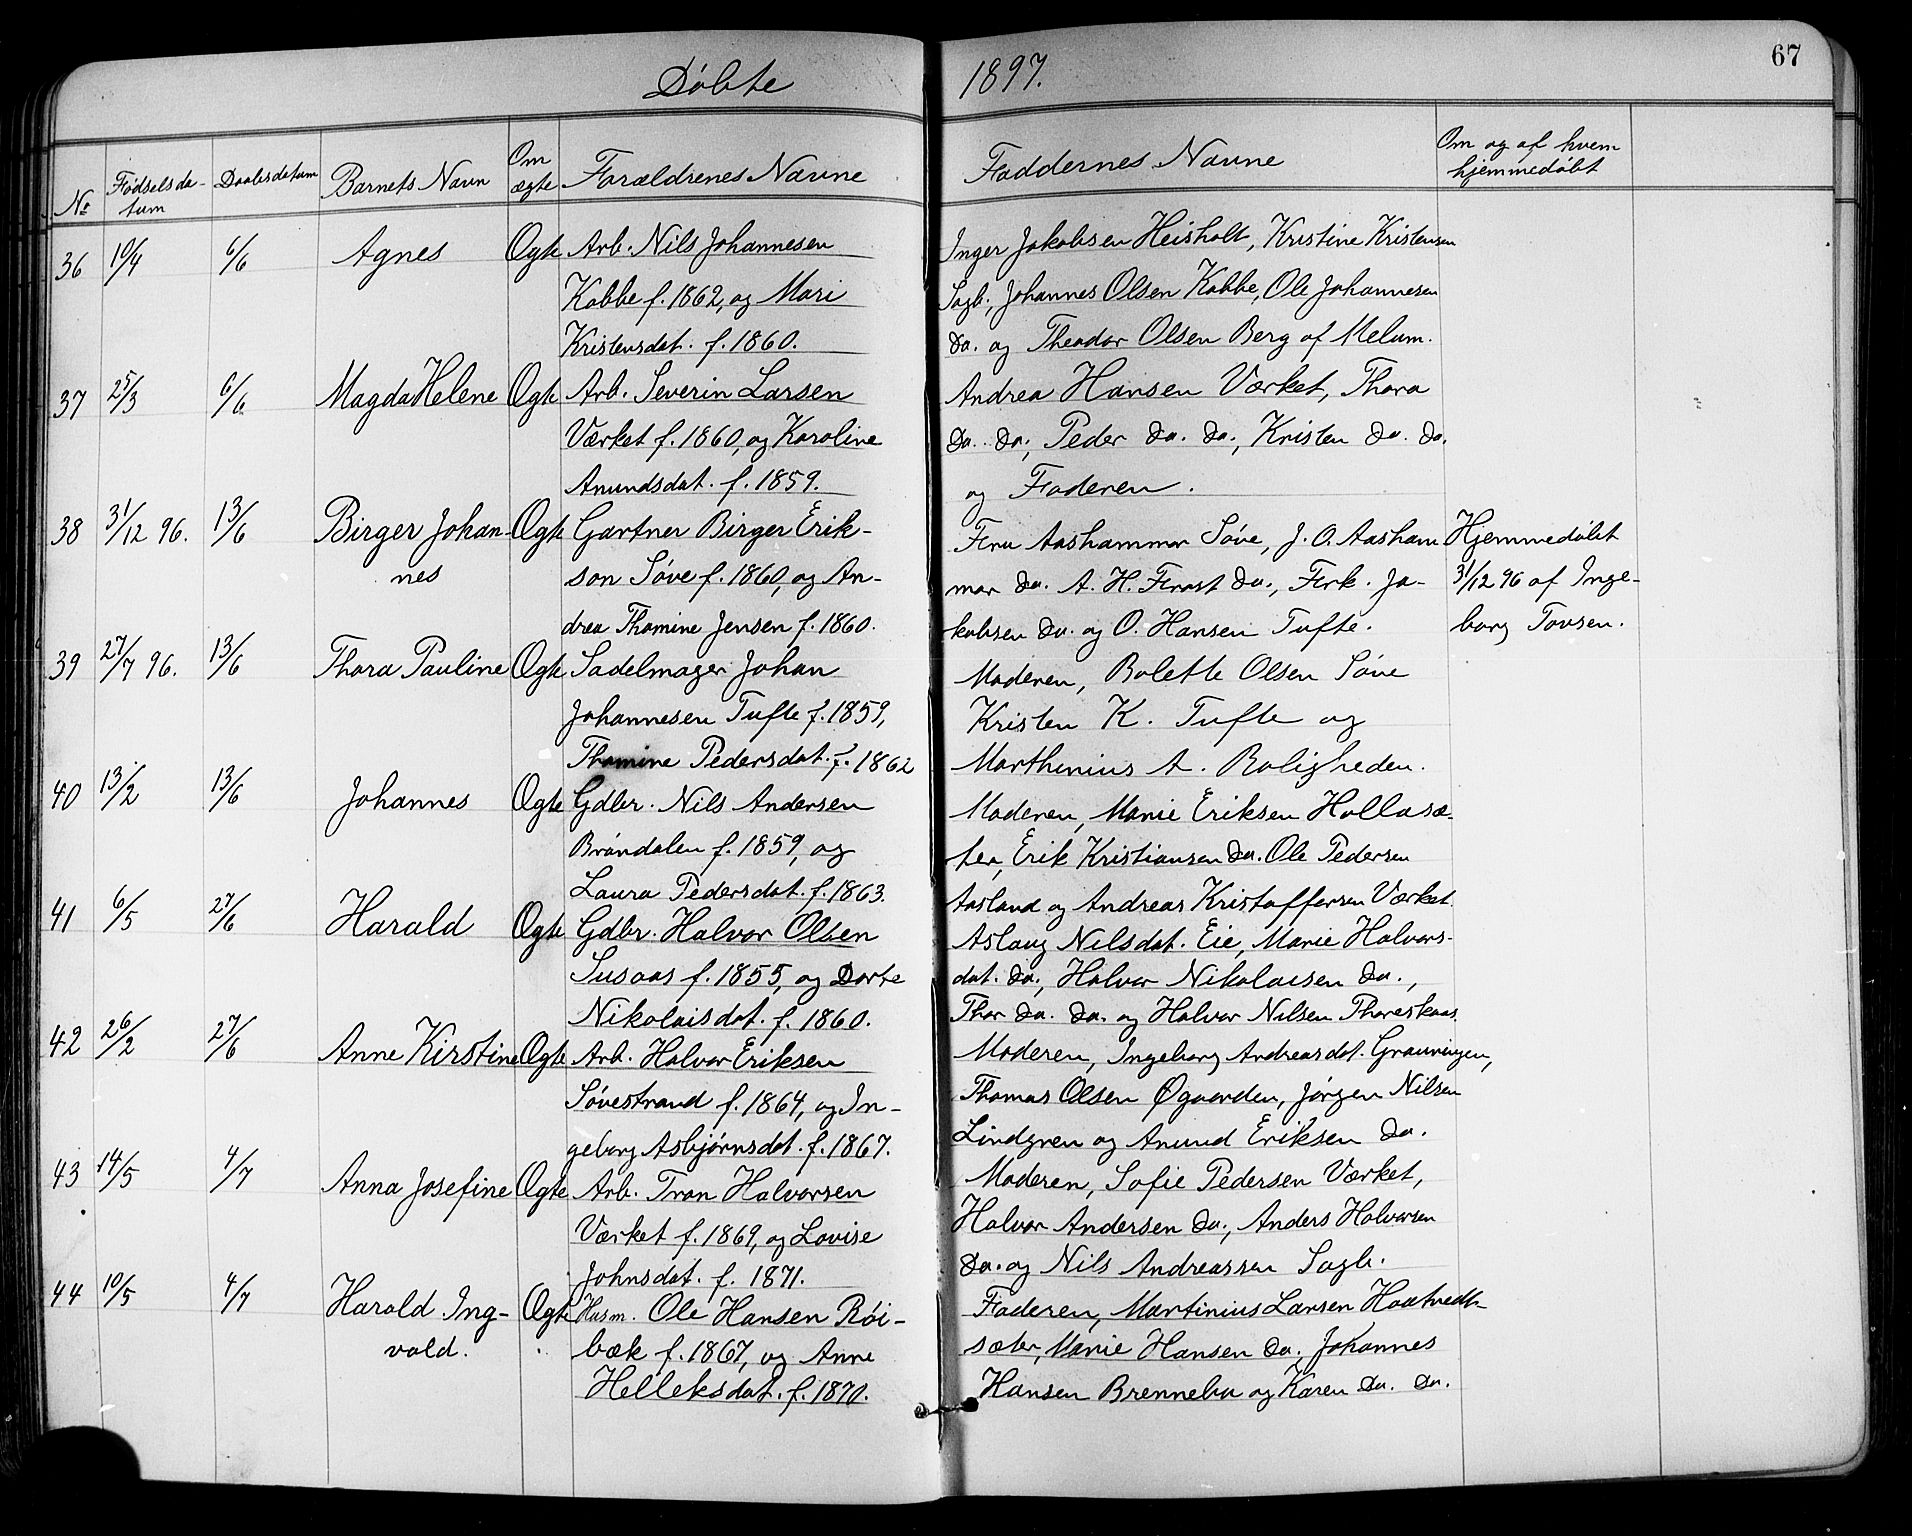 67
Døbte 1897.
No Fødselsdatum Daabsdatum Barnets Navn Om ægte Forældrenes Navne Faddernes Navne Om og af hvem hjemmedøbt
36 10/4 6/6 Agnes Ogte Arb. Nils Johannesen Inger Jakobsen Heisholt, Kristine Kristensen
Kabbe f. 1862, og Mari Sagb., Johannes Olsen Kabbe, Ole Johannesen
Kristensdat. f. 1860. Do. og Theodor Olsen Berg af Melum.
37 25/3 6/6 Magda Helene Ogte Arb. Severin Larsen Andrea Hansen Værket, Thora
Værket f. 1860, og Karoline Do. Do., Peder Do. Do., Kristen Do. Do.
Anundsdat. f. 1859. og Faderen.
38 31/12 96. 13/6 Birger Johan- Ogte Gartner Birger Erik- Fru Aashammar Søve, J. O. Aasham Hjemmedøbt
nes son Søve f. 1860, og An- mar Do. A. H. Frost Do., Frk. Ja- 31/12 96 af Inge-
drea Thomine Jensen f. 1860. kobsen Do. og O. Hansen Tufte. borg Tovsen.
39 27/7 96. 13/6 Thora Pauline Ogte Sadelmager Johan Moderen, Bolette Olsen Søve
Johannesen Tufte f. 1859, Kristen K. Tufte og
Thomine Pedersdat. f. 1862 Marthinius A. Roligheden.
40 13/2 13/6 Johannes Ogte Gdbr. Nils Andersen Moderen, Marie Eriksen Hollasæ-
Brøndalen f. 1859, og ter, Erik Kristiansen Do. Ole Pedersen
Laura Pedersdat. f. 1863. Aasland og Andreas Kristoffersen Værket.
41 6/5 27/6 Harald Ogte Gdbr. Halvor Olsen Aslaug Nilsdat. Eie, Marie Halvors-
Susaas f. 1855, og Dorte dat. Do., Halvor Nikolaisen Do.,
Nikolaisdat. f. 1860. Thor Do. Do. og Halvor Nilsen Thoreskaas.
42 26/2 27/6 Anne Kirstine Ogte Arb. Halvor Eriksen Moderen, Ingeborg Andreasdat. Grauningen,
Søvestrand f. 1864, og In- Thomas Olsen Øgaarden, Jørgen Nilsen
geborg Asbjørnsdat. f. 1867. Lindgren og Anund Eriksen Do.
43 14/5 4/7 Anna Josefine Ogte Arb. Tron Halvorsen Moderen, Sofie Pedersen Værket,
Værket f. 1869, og Lovise Halvor Andersen Do., Anders Halvorsen
Johnsdat. f. 1871. Do. og Nils Andreassen Sagb.
44 10/5 4/7 Harald Ing- Ogte Husm. Ole Hansen Røi- Faderen, Martinius Larsen Haatvedt-
vald. bæk f. 1867, og Anne sæter, Marie Hansen Do., Johannes
Helleksdat. f. 1870. Hansen Brennebu og Karen Do. Do.